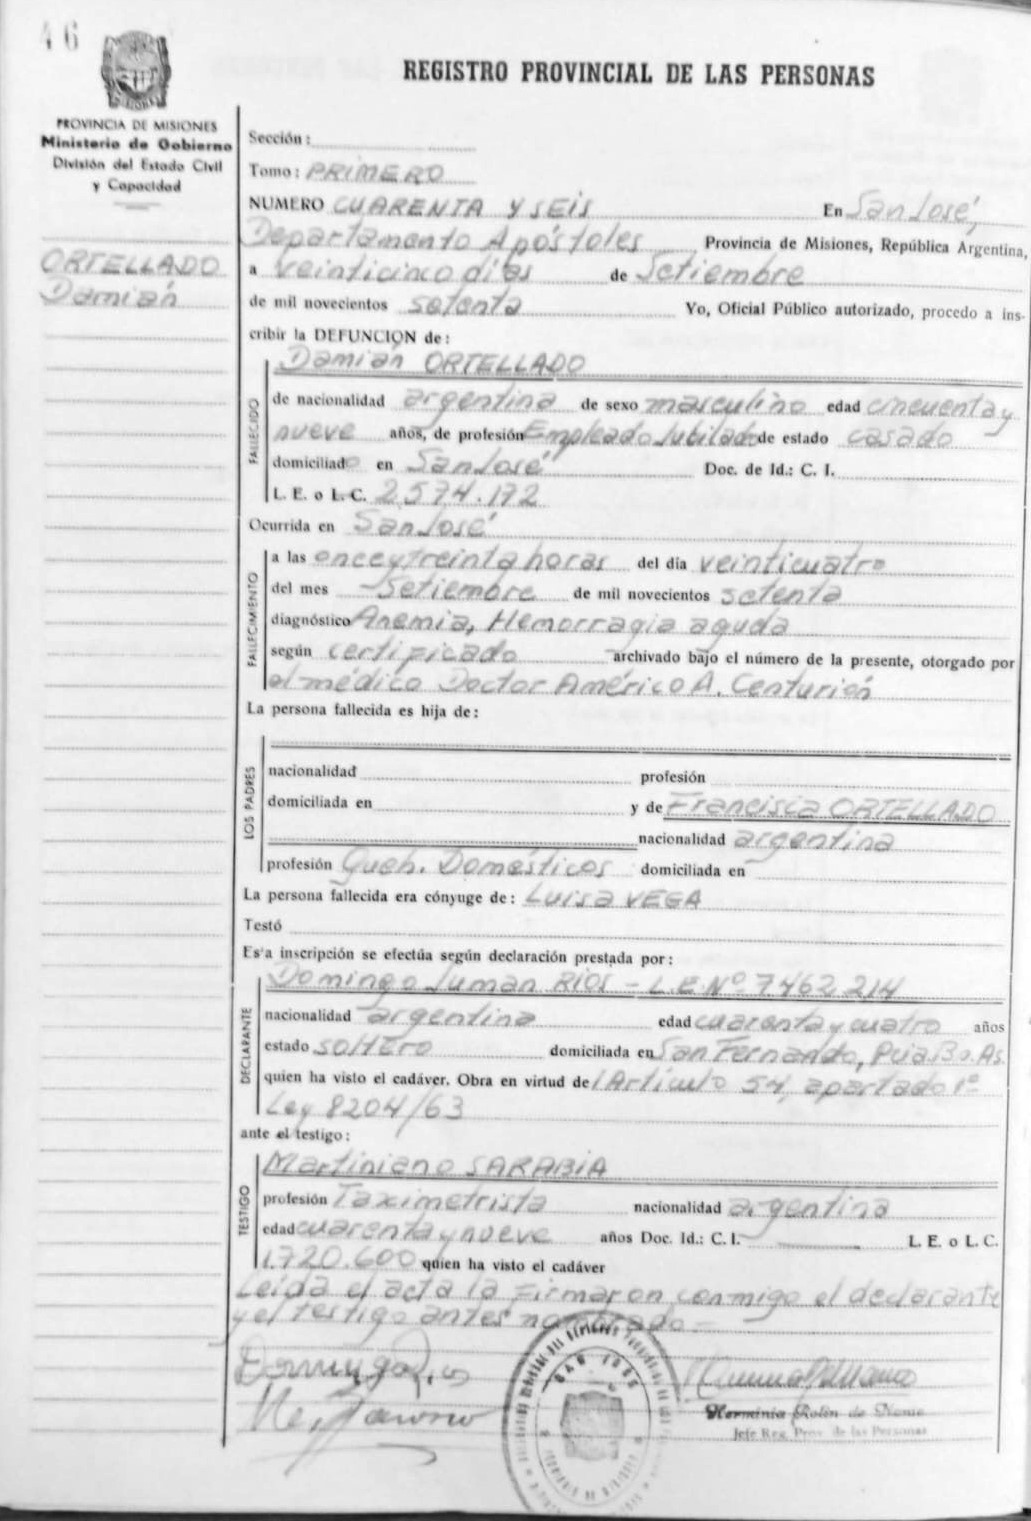 46
REGISTRO PROVINCIAL DE LAS PERSONAS
PROVINCIA DE MISIONES
Ministerio de Gobierno
División del Estado Civil
y Capacidad
ORTELLADO
Damián
Sección:
Tomo: PRIMERO
NUMERO CUARENTA Y SEIS En San José,
Departamento Apóstoles Provincia de Misiones, República Argentina,
a veinticinco días de Setiembre
de mil novecientos setenta Yo, Oficial Público autorizado, procedo a ins-
cribir la DEFUNCION de:
Damián ORTELLADO
FALLECIDO
de nacionalidad argentina de sexo masculino edad cincuenta y
nueve años, de profesión Empleado Jubilado de estado casado
domiciliado en San José Doc. de Id.: C. I.
L. E. o L. C. 2.574.172
Ocurrida en San José
FALLECIMIENTO
a las once y treinta horas del día veinticuatro
del mes Setiembre de mil novecientos setenta
diagnóstico Anemia, Hemorragia aguda
según certificado archivado bajo el número de la presente, otorgado por
el médico Doctor Américo A. Centurión
La persona fallecida es hija de:
LOS PADRES
nacionalidad profesión
domiciliada en y de Francisca ORTELLADO
nacionalidad argentina
profesión Queh. Domésticos domiciliada en
La persona fallecida era cónyuge de: Luisa VEGA
Testó
Esta inscripción se efectúa según declaración prestada por:
DECLARANTE
Domingo Juman RIOS - L.E. Nº 7462214
nacionalidad argentina edad cuarenta y cuatro años
estado soltero domiciliada en San Fernando, Pcia. Bs. As.
quien ha visto el cadáver. Obra en virtud de l Artículo 54, apartado 1º
Ley 8204/63
ante el testigo:
TESTIGO
Martiniano SARABIA
profesión Taximetrista nacionalidad argentina
edad cuarenta y nueve años Doc. Id.: C. I. L. E. o L. C.
1.720.600 quien ha visto el cadáver
Leída el acta la Firmaron conmigo el declarante
y el testigo antes nombrado -
Domingo Rios
Herminia Rolin de
Jefe Reg. Prov. de las Personas